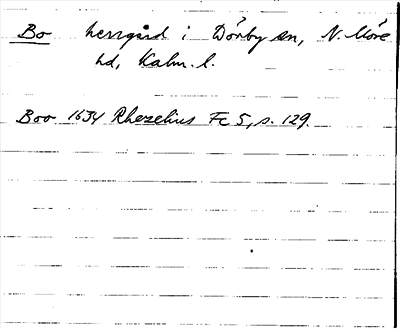 Bo herrgård i Dörby sn, N. Möre
hd, Kalm. l.
Boo 1634 Rhezelius Fc 5, s. 129.